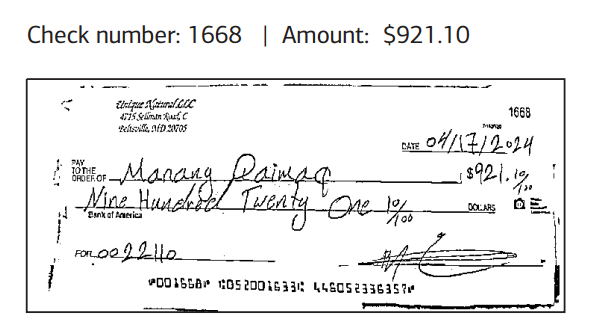 Check number: 1668 | Amount: $921.10
Unique Natural LLC
4715 Sellman Road, C
Beltsville, MD 20705
1668
DATE 04/17/2024
PAY TO THE ORDER OF Manang $921.10/100
Nine Hundred Twenty One 10/100 DOLLARS
Bank of America
FOR 0022110